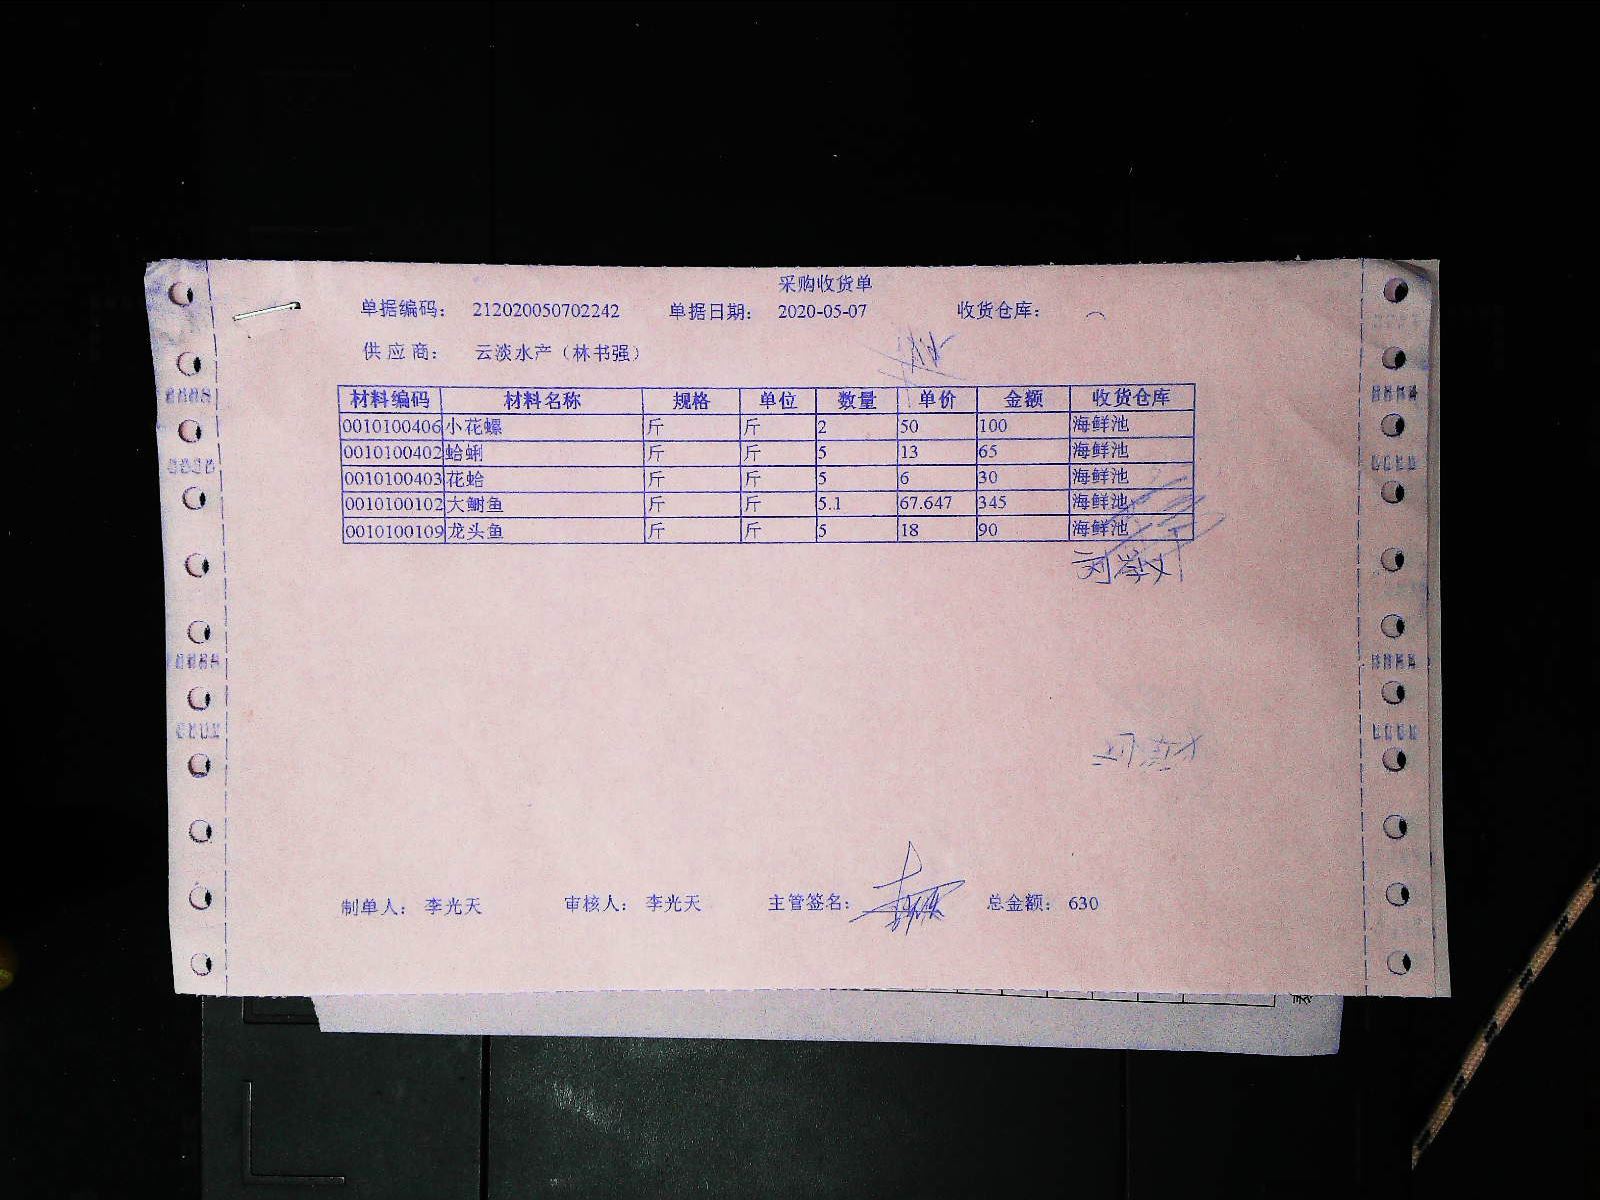 采购收货单
单据编码： 212020050702242 单据日期： 2020-05-07 收货仓库：
供应商： 云淡水产（林书强）
材料编码 材料名称 规格 单位 数量 单价 金额 收货仓库
0010100406 小花螺 斤 斤 2 50 100 海鲜池
0010100402 蛤蜊 斤 斤 5 13 65 海鲜池
0010100403 花蛤 斤 斤 5 6 30 海鲜池
0010100102 大鲥鱼 斤 斤 5.1 67.647 345 海鲜池
0010100109 龙头鱼 斤 斤 5 18 90 海鲜池
制单人： 李光天 审核人： 李光天 主管签名： 总金额： 630